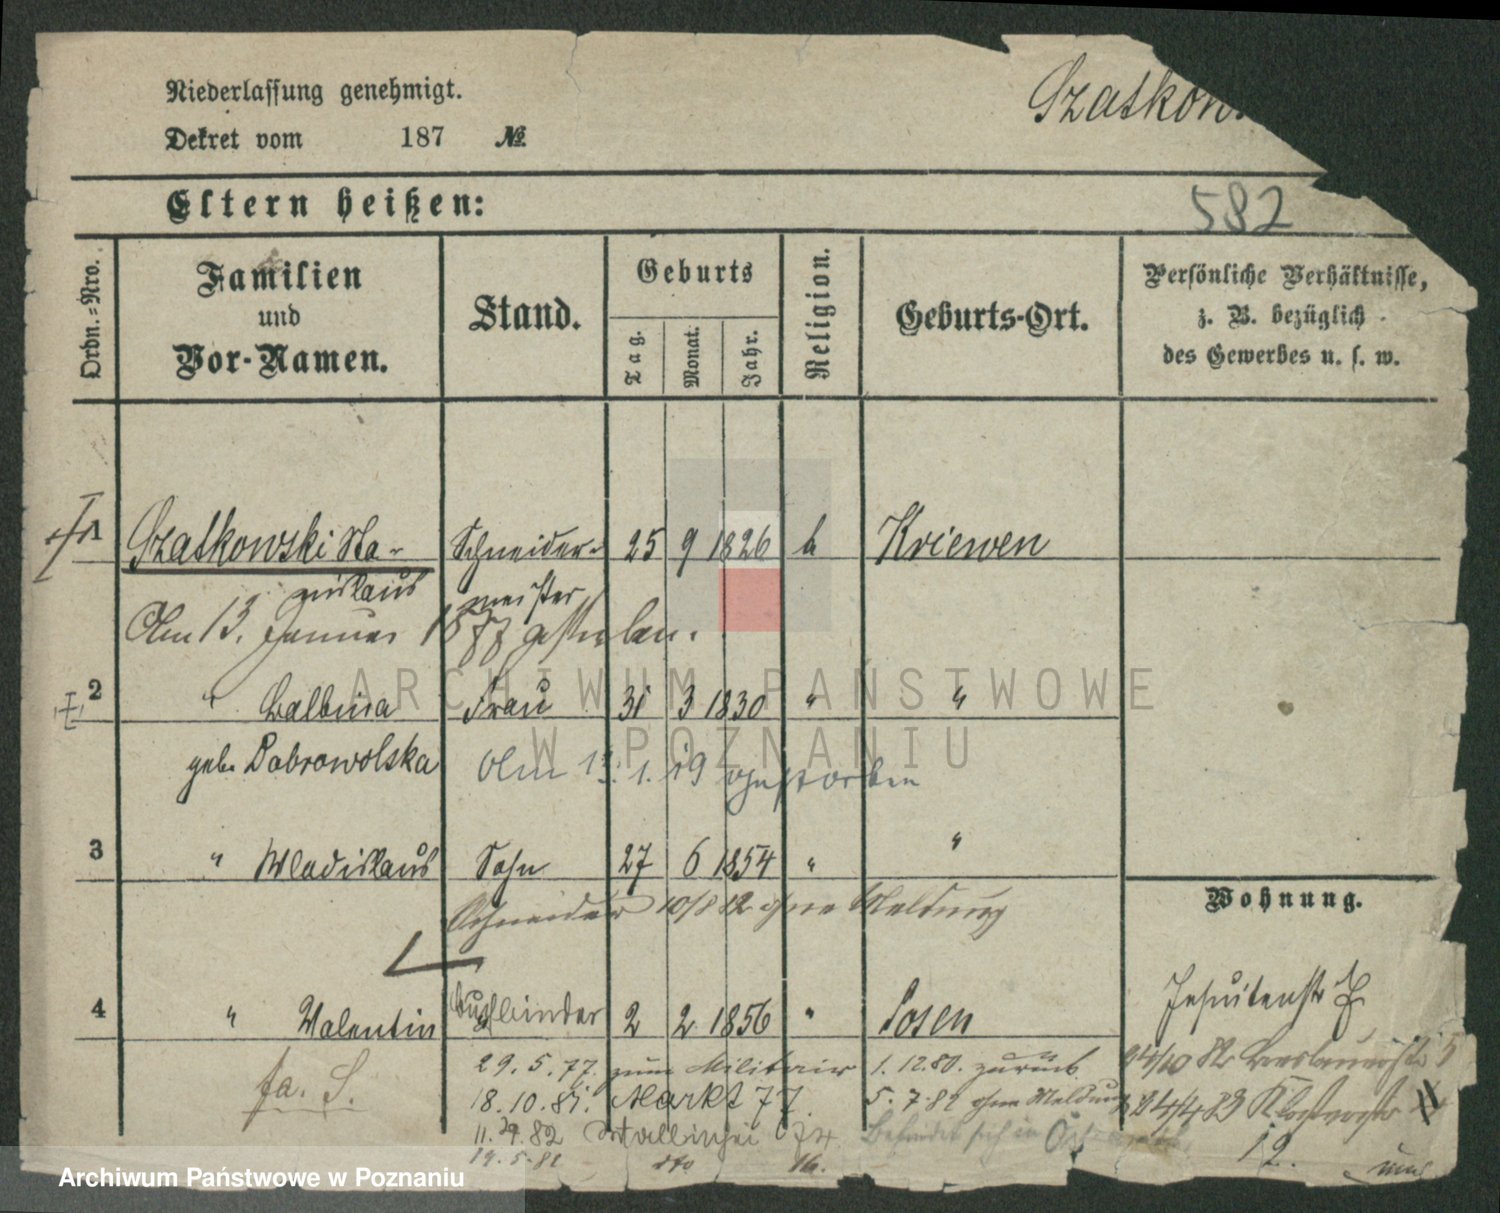 Niederlassung genehmigt.
Dekret vom 187 №.
Szatkow
Eltern heißen:
582
Ordn.-Nro.
Familien und Vor-Namen.
Stand.
Geburts
Tag.
Monat.
Jahr.
Religion.
Geburts-Ort.
Persönliche Verhältnisse,
z. B. bezüglich
des Gewerbes u. s. w.
1 Szatkowski Sta- Schneider- 25 9 1826 k Kriewen
nislaus meister
Am 13. Januar 1877 gestorben.
2 " Balbina Frau 31 3 1830 " "
geb. Dobrowolska Am 1.19 gestorben
3 " Wladislaus Sohn 27 6 1854 " "
Schneider 10/8 82 ohne Meldung
Wohnung.
4 " Valentin Buchbinder 2 2 1856 " Posen
Jesuitenstr
29. 5. 77. zum Militair 1. 12. 80. zurück
24/10 82 5
fa. S.
18. 10. 81. Markt 77. 5. 7. 82 ohne Meldung
24/4 83
Befindet sich in
12.
19. 5. 82 dto 16.
ARCHIWUM PAŃSTWOWE
W POZNANIU
Archiwum Państwowe w Poznaniu